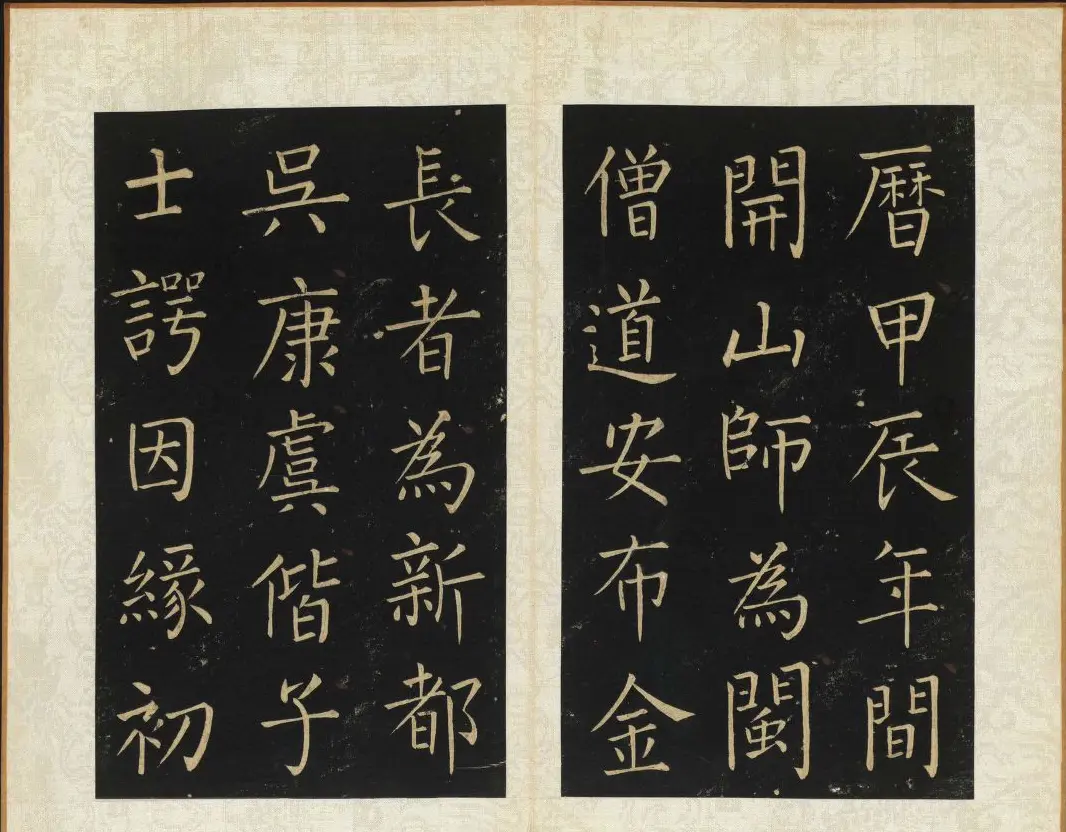 曆甲辰年間
開山師為閩
僧道安布金
長者為新都
吳康虞偕子
士諤因緣初